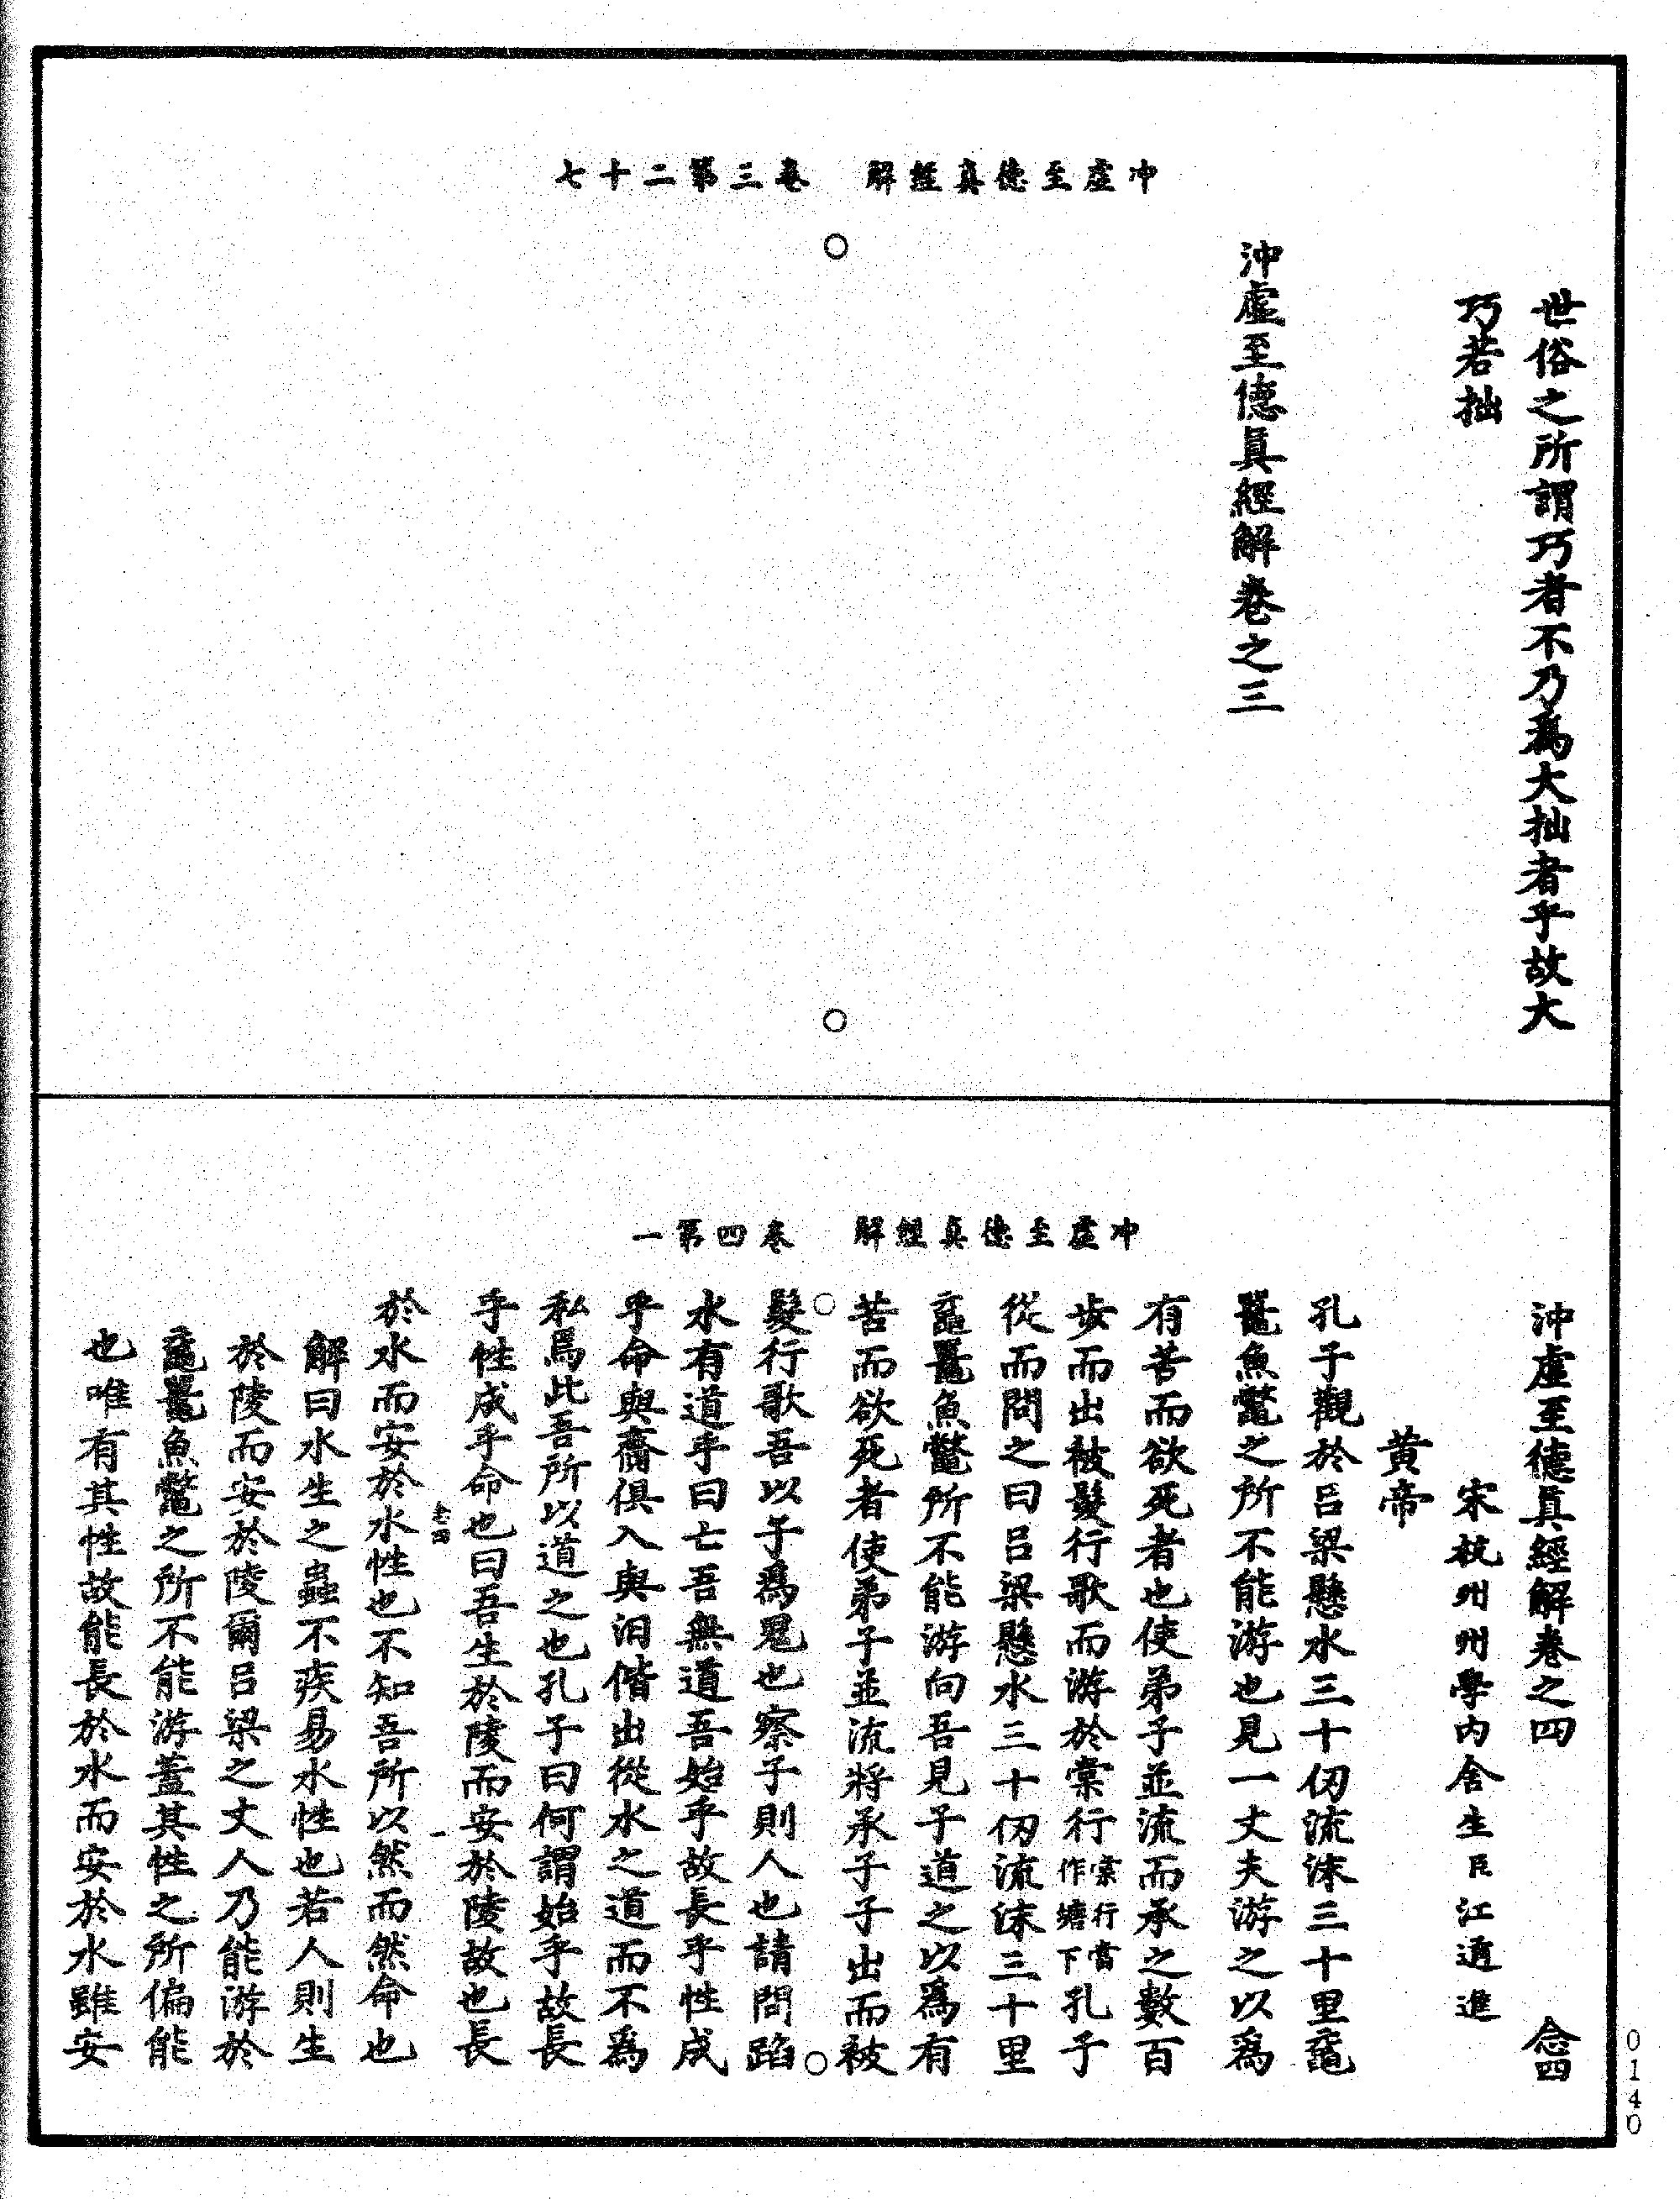 冲虛至德真經解　卷三第二十七
世俗之所謂巧者不乃為大拙者乎故大
巧若拙
沖虛至德真經解卷之三
冲虛至德真經解　卷四第一
沖虛至德真經解卷之四　念四
宋杭州州學內舍生臣江遹進
黄帝
孔子觀於呂梁懸水三十仞流沫三十里黿
鼉魚鼈之所不能游也見一丈夫游之以為
有苦而欲死者也使弟子並流而承之數百
步而出被髮行歌而游於棠行棠行當作塘下孔子
從而問之曰呂梁懸水三十仞流沫三十里
黿鼉魚鼈所不能游向吾見子道之以為有
苦而欲死者使弟子並流將承子子出而被
髮行歌吾以子為鬼也察子則人也請問蹈
水有道乎曰亡吾無道吾始乎故長乎性成
乎命與齊俱入與汩偕出從水之道而不為
私焉此吾所以道之也孔子曰何謂始乎故長
乎性成乎命也曰吾生於陵而安於陵故也長
於水而安於水性也不知吾所以然而然命也
念四　一
解曰水生之蟲不疾易水性也若人則生
於陵而安於陵爾呂梁之丈人乃能游於
黿鼉魚鼈之所不能游蓋其性之所偏能
也唯有其性故能長於水而安於水雖安
0140